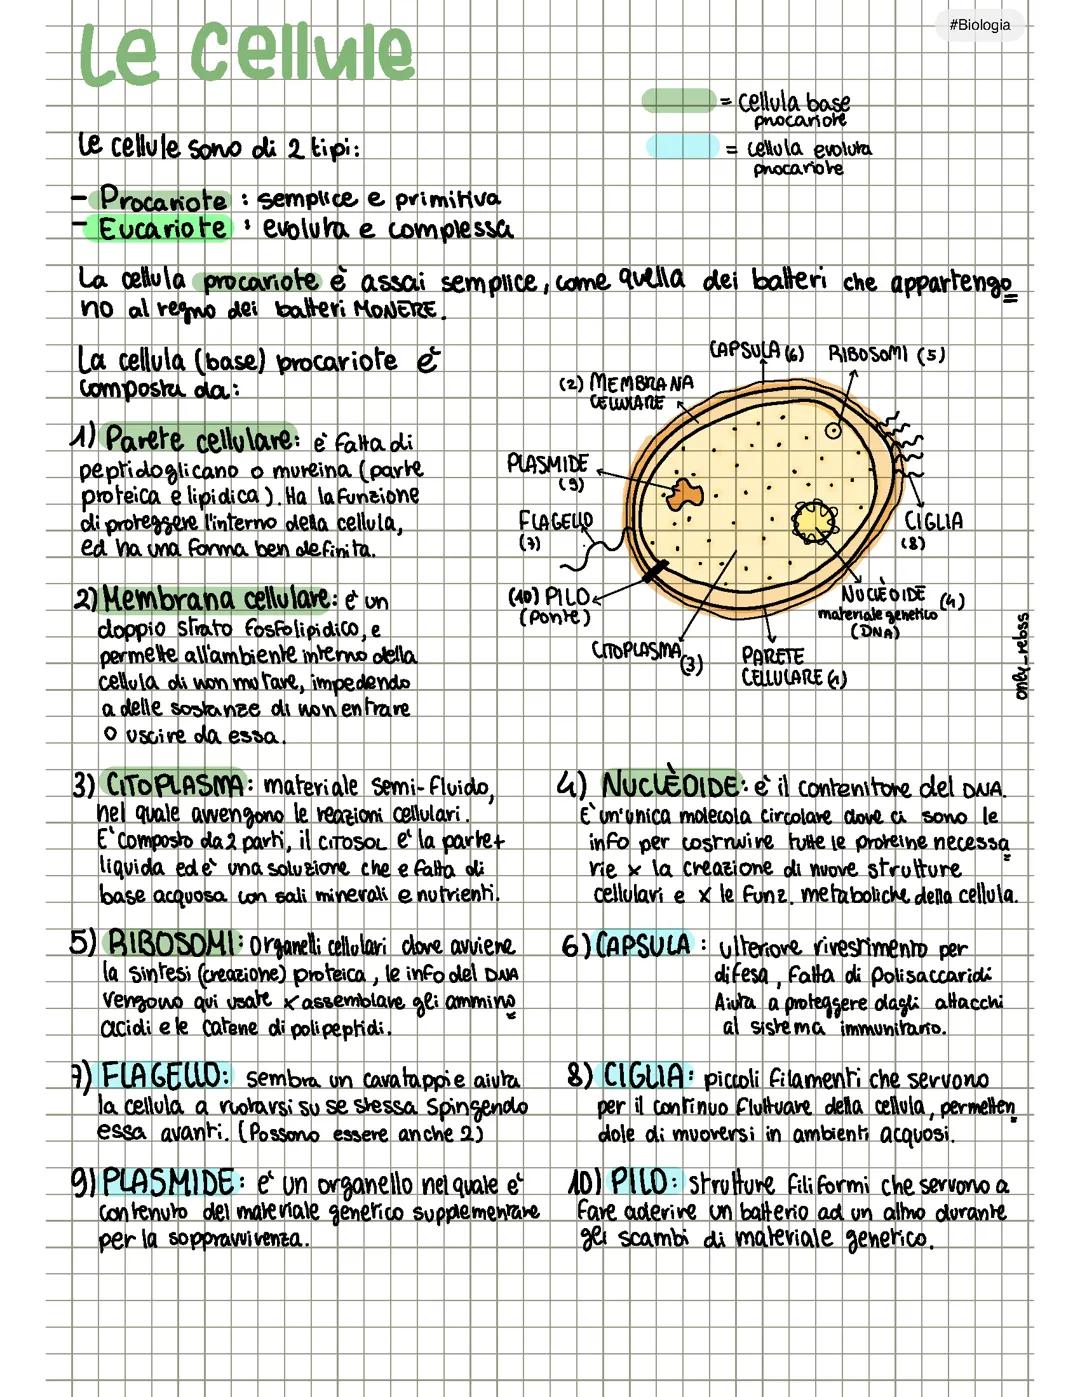 #Biologia
Le Cellule
= cellula base
procariote
= cellula evoluta
procariote
Le cellule sono di 2 tipi:
- Procariote : semplice e primitiva
- Eucariote : evoluta e complessa
La cellula procariote è assai semplice, come quella dei batteri che appartengo
no al regno dei batteri MONERE.
La cellula (base) procariote è
composta da:
1) Parete cellulare: è fatta di
peptidoglicano o mureina (parte
proteica e lipidica). Ha la funzione
di proteggere l'interno della cellula,
ed ha una forma ben definita.
2) Membrana cellulare: è un
doppio strato fosfolipidico, e
permette all'ambiente interno della
cellula di non mutare, impedendo
a delle sostanze di non entrare
o uscire da essa.
CAPSULA (6)
RIBOSOMI (5)
(2) MEMBRANA
CELLULARE
PLASMIDE
(9)
FLAGELLO
(7)
(10) PILO
(Ponte)
CITOPLASMA
(3)
PARETE
CELLULARE (1)
NUCLÈOIDE (4)
materiale genetico
(DNA)
CIGLIA
(8)
only_rebss
3) CITOPLASMA: materiale semi-fluido,
nel quale avvengono le reazioni cellulari.
E' composto da 2 parti, il CITOSOL e' la parte +
liquida ed è una soluzione che e fatta di
base acquosa con sali minerali e nutrienti.
4) NUCLÈOIDE: è il contenitore del DNA.
E' un'unica molecola circolare dove ci sono le
info per costruire tutte le proteine necessa
rie x la creazione di nuove strutture
cellulari e x le funz. metaboliche della cellula.
5) RIBOSOMI: organelli cellulari dove avviene
la sintesi (creazione) proteica, le info del DNA
vengono qui usate x assemblare gli ammino
acidi e le catene di polipeptidi.
6) CAPSULA : ulteriore rivestimento per
difesa, fatta di Polisaccaridi
Aiuta a proteggere dagli attacchi
al sistema immunitario.
7) FLAGELLO: sembra un cavatappi e aiuta
la cellula a ruotarsi su se stessa spingendo
essa avanti. (Possono essere anche 2)
8) CIGLIA: piccoli filamenti che servono
per il continuo fluttuare della cellula, permetten
dole di muoversi in ambienti acquosi.
9) PLASMIDE: e' un organello nel quale e'
contenuto del materiale genetico supplementare
per la sopravvivenza.
10) PILO: strutture filiformi che servono a
fare aderire un batterio ad un altro durante
gli scambi di materiale genetico.